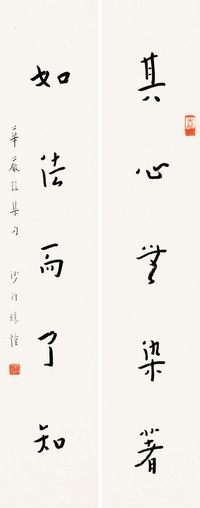 其心無染著
如法而了知
華嚴經集句 沙門